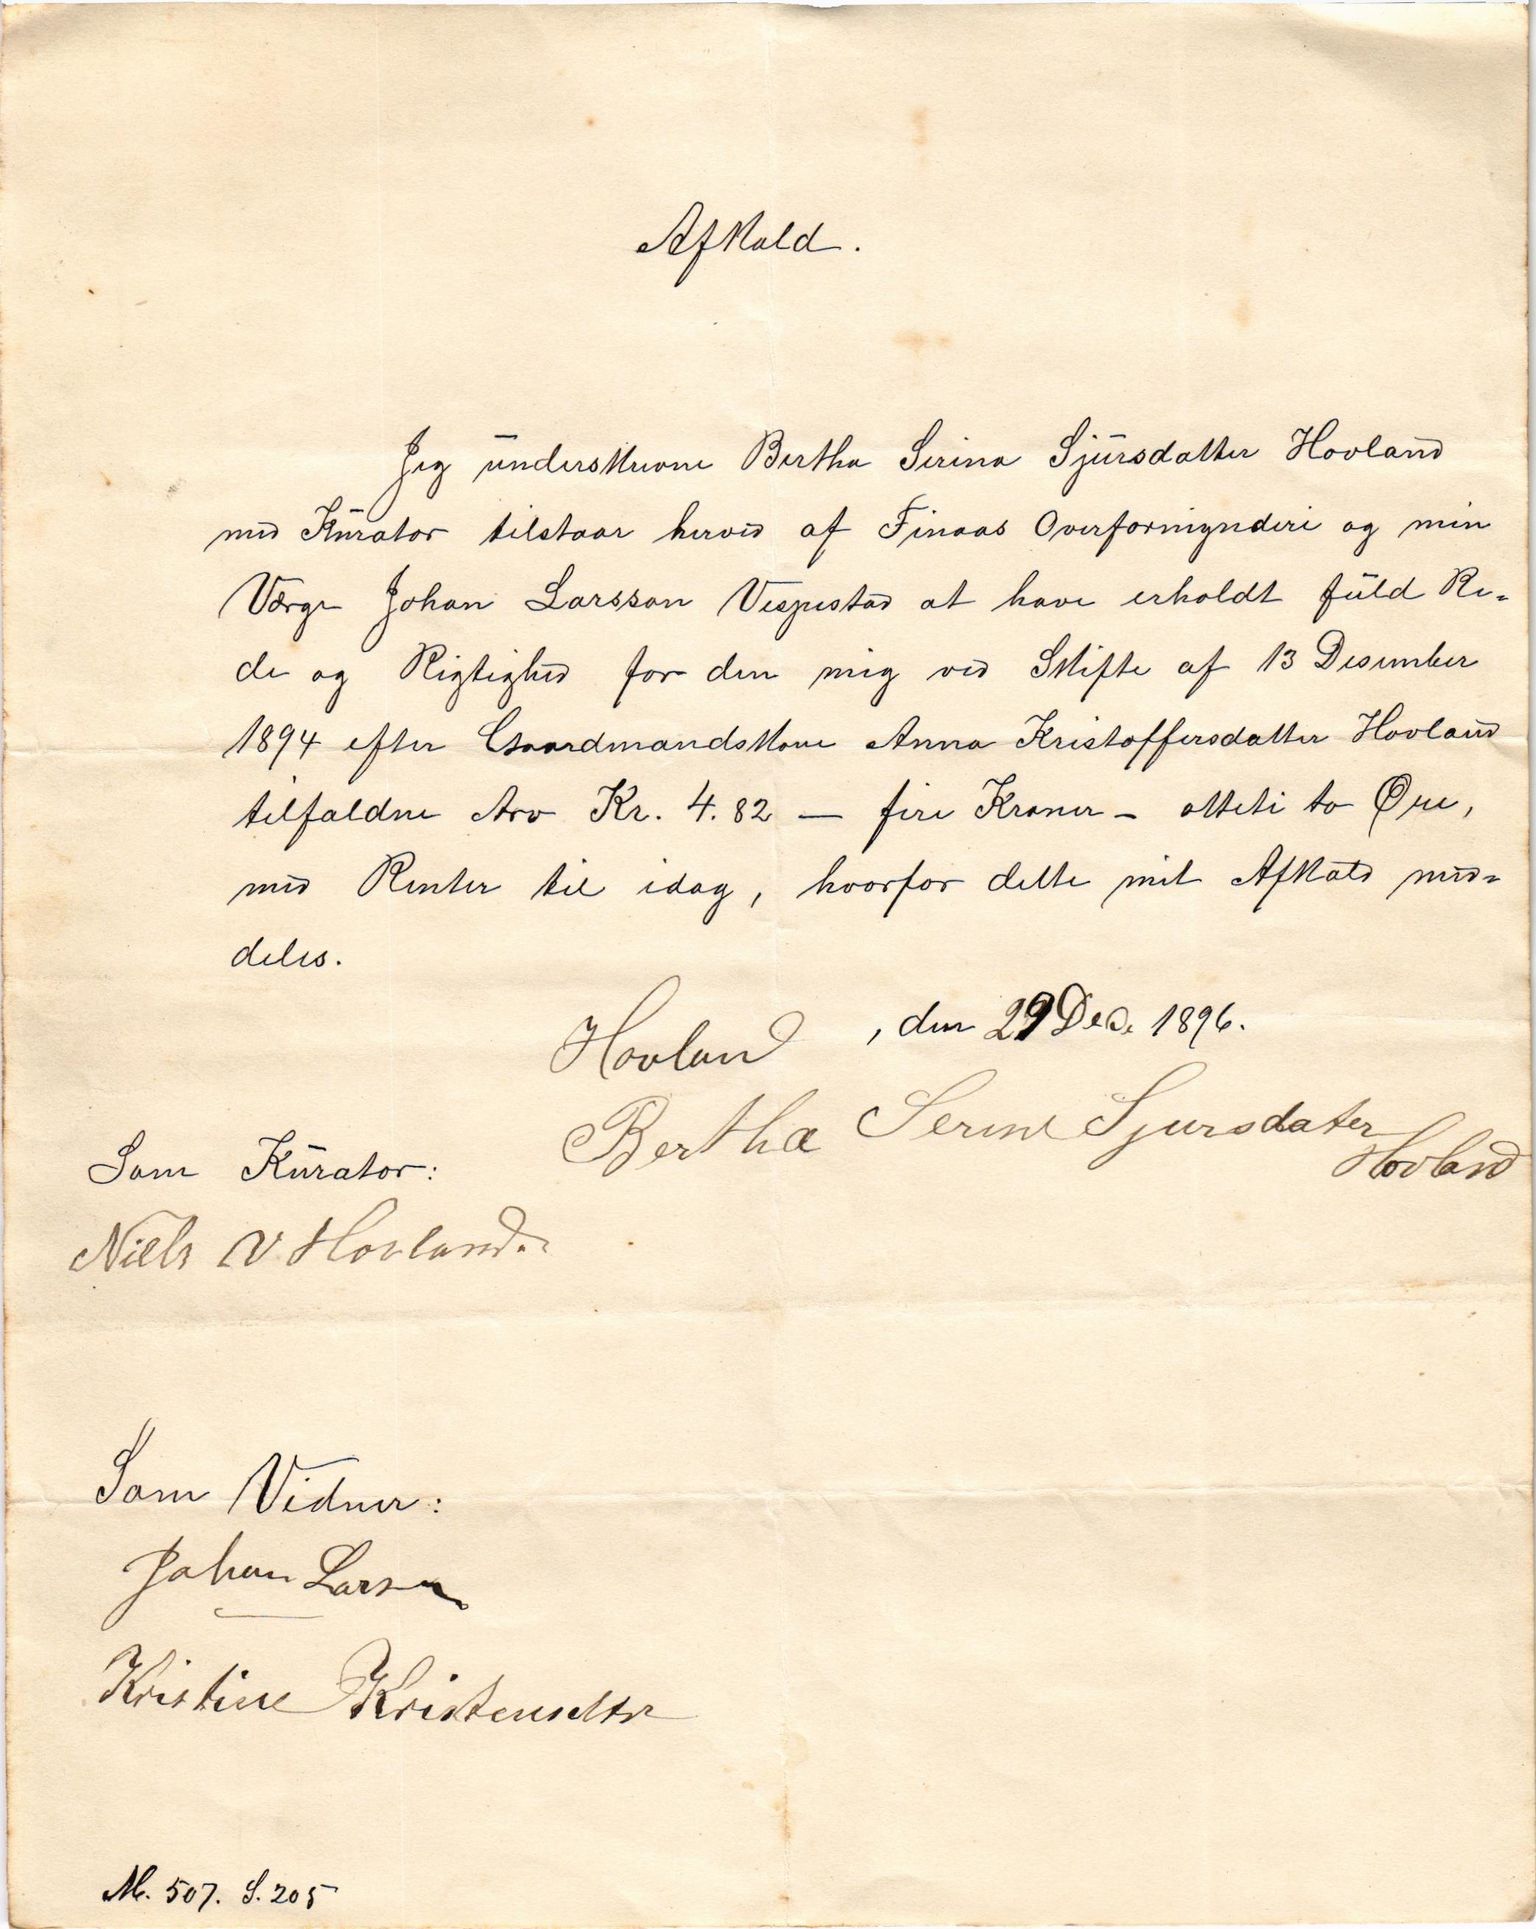 Afkald.
Jeg underskrevne Bertha Serina Sjursdatter Hovland
med Kurator tilstaar herved af Finaas Overformynderi og min
Værge Johan Larsson Vespestad at have erholdt fuld Re-
de og Rigtighed for den mig ved Skifte af 13 Desember
1894 efter Gaardmandskone Anna Kristoffersdatter Hovland
tilfaldne Arv Kr. 4.82 — fire Kroner - otteti to Øre,
med Renter til idag, hvorfor dette mit Afkald med-
deles.
Hovland , den 29 Dec. 1896.
Bertha Serine Sjursdater
Hovland
Som Kurator:
Niels V Hovland.
Som Vidner:
Johan Larsen
Kristine Kristensdtr
M. 507. S. 205